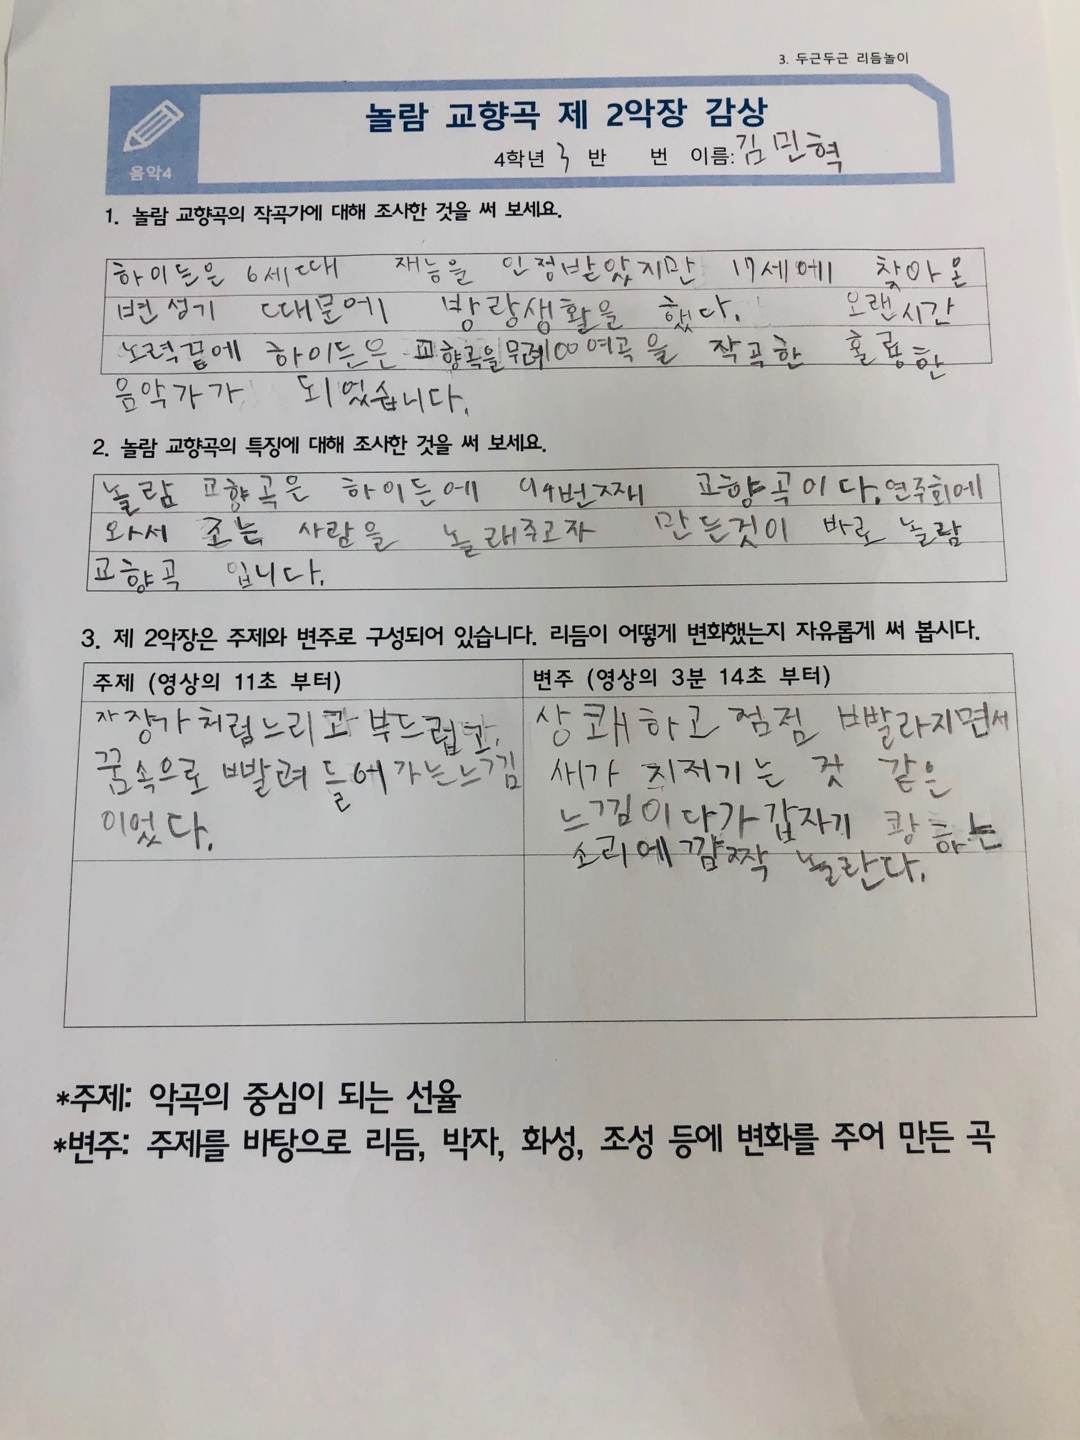 3. 두근두근 리듬놀이
놀람 교향곡 제 2악장 감상
4학년 3 반 번 이름: 김민혁
음악4
1. 놀람 교향곡의 작곡가에 대해 조사한 것을 써 보세요.
하이든은 6세때 재능을 인정받았지만 17세에 찾아온
변성기 때문에 방랑생활을 했다. 오랜시간
노력끝에 하이든은 교향곡을무려100여곡을 작곡한 훌륭한
음악가가 되었습니다.
2. 놀람 교향곡의 특징에 대해 조사한 것을 써 보세요.
놀람 교향곡은 하이든에 94번째 교향곡이다.연주회에
와서 조는 사람을 놀래주고자 만든것이 바로 놀람
교향곡 입니다.
3. 제 2악장은 주제와 변주로 구성되어 있습니다. 리듬이 어떻게 변화했는지 자유롭게 써 봅시다.
주제 (영상의 11초 부터)
자장가처럼느리고 부드럽고,
꿈속으로 빨려 들어가는느낌
이었다.
변주 (영상의 3분 14초 부터)
상쾌하고 점점 빨라지면서
새가 지저기는 것 같은
느낌이다가갑자기 쾅하는
소리에깜짝 놀란다.
*주제: 악곡의 중심이 되는 선율
*변주: 주제를 바탕으로 리듬, 박자, 화성, 조성 등에 변화를 주어 만든 곡